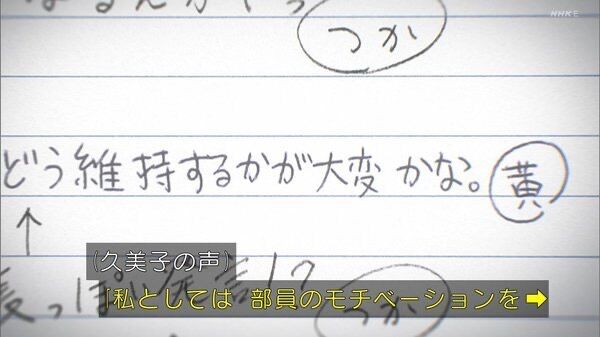 NHK E
つか
どう維持するかが大変かな。 黄
↑
(久美子の声)
「私としては 部員のモチベーションを➡
っぽい !? つか